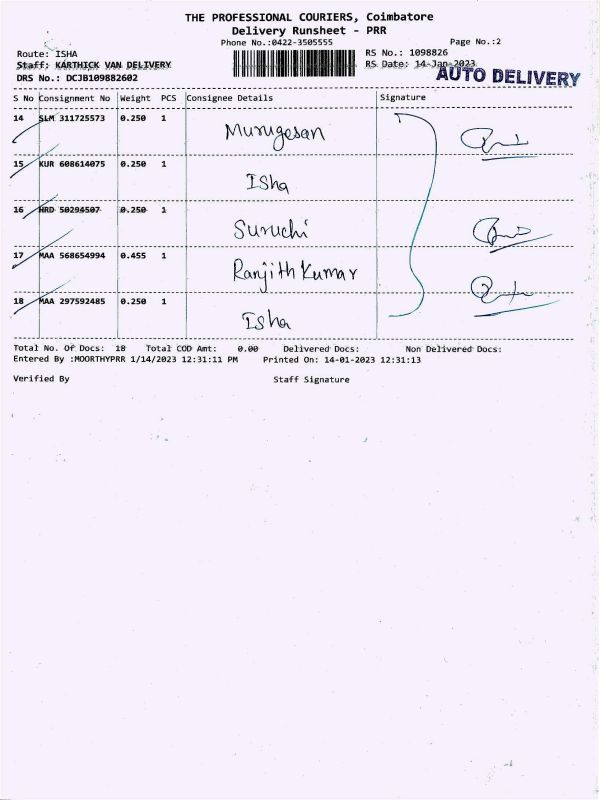 THE PROFESSIONAL COURIERS, Coimbatore
Delivery Runsheet - PRR
Phone No.:0422-3505555 Page No.:2
Route: ISHA RS No.: 1098826
Staff: KARTHICK VAN DELIVERY RS Date: 14-Jan-2023
DRS No.: DCJB109882602 AUTO DELIVERY
S No Consignment No Weight PCS Consignee Details Signature
14 SLM 311725573 0.250 1 Murugesan
15 KUR 608614075 0.250 1 Isha
16 HRD 50294507 0.250 1 Suruchi
17 MAA 568654994 0.455 1 Ranjith Kumar
18 MAA 297592485 0.250 1 Isha
Total No. Of Docs: 18 Total COD Amt: 0.00 Delivered Docs: Non Delivered Docs:
Entered By :MOORTHYPRR 1/14/2023 12:31:11 PM Printed On: 14-01-2023 12:31:13
Verified By Staff Signature